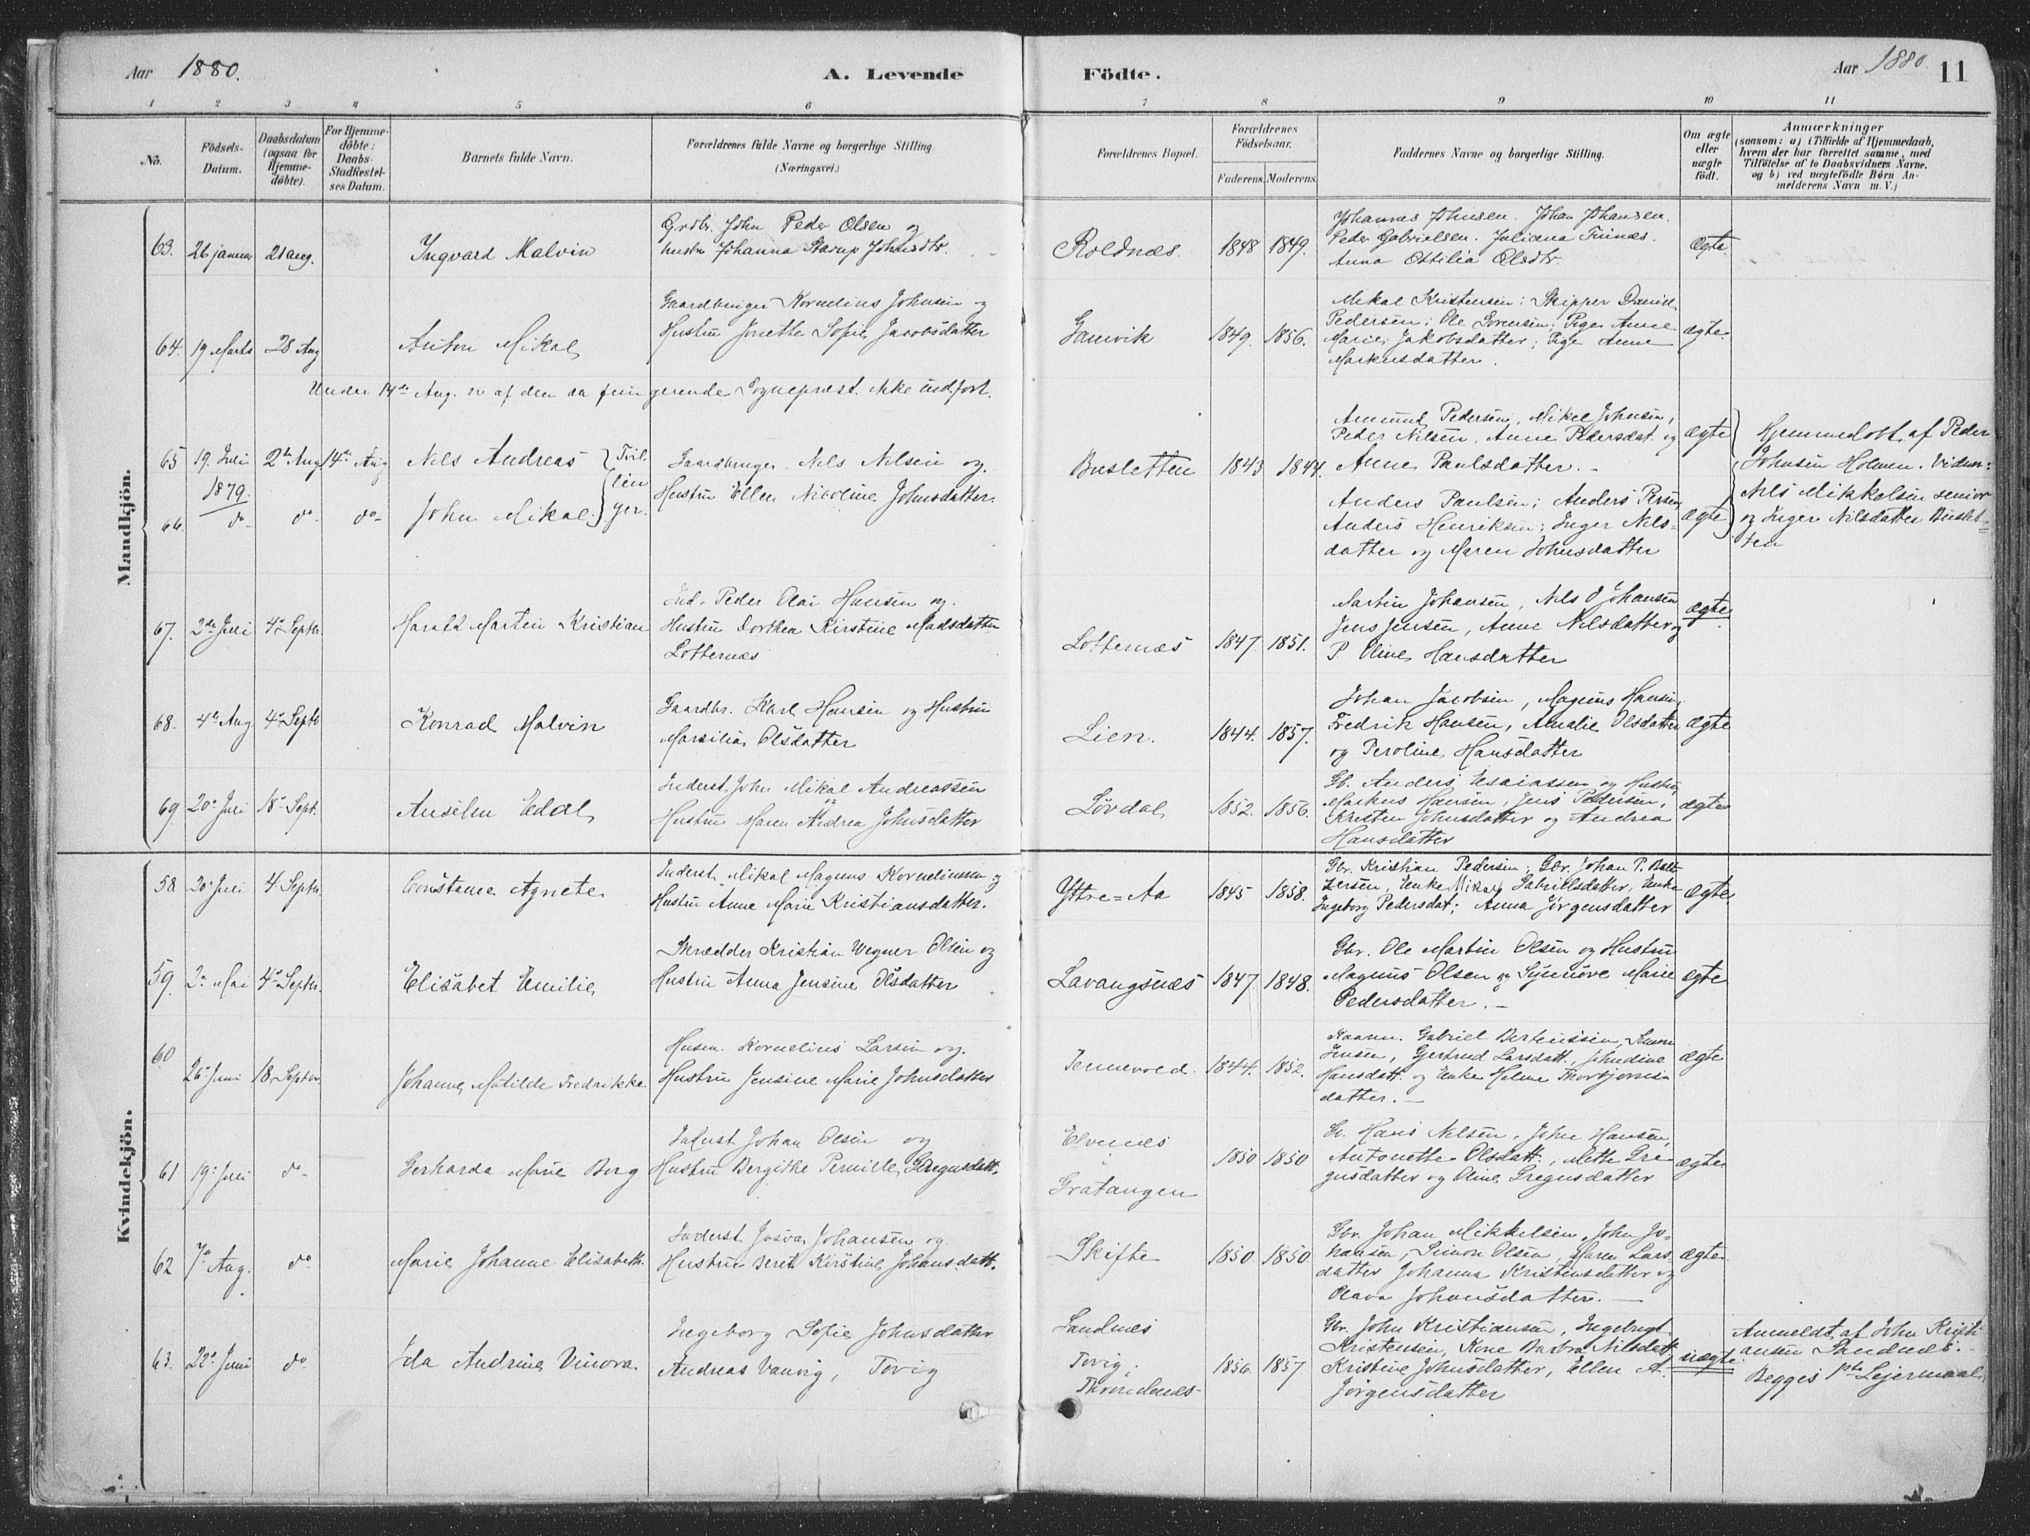 Aar 1880. A. Levende Födte. Aar 1880. 11
1 2 3 4 5 6 7 8 9 10 11
No. Födsels-Datum. Daabsdatum (ogsaa for Hjemmedöbte). For Hjemmedöbte: Daabs-Stadfæstelses Datum. Barnets fulde Navn. Forældrenes fulde Navne og borgerlige Stilling. (Næringsvei.) Forældrenes Bopæl. Forældrenes Födselsaar. Faderens. Moderens. Faddernes Navne og borgerlige Stilling. Om ægte eller uægte födt. Anmærkninger
(saasom: a) i Tilfælde af Hjemmedaab, hvem der har forrettet samme, med Tilföielse af to Daabsvidners Navne. og b) ved uægtefödte Börn Anmelderens Navn m. V.)
Mandkjön.
63. 26 januar 21 aug. Ingvard Malvin
Grdbr. John Peder Olsen og
hustru Johanna Starup Johnsdtr.
Roldnæs. 1848 1849.
Johannes Johnsen. Johan Johansen.
Peder Gabrielsen. Juliana Tunæs.
Anna Ottilia Olsdtr.
ægte
64. 19 Marts 28 Aug Anton Mikal
Gaardbruger Kornelius Johnsen og
Hustru Jonette Sofie Jacobsdatter
Gamvik 1849. 1856.
Mikal Kristensen; Skipper Daniel
Pedersen; Ole Sørensen; Pige Anne
Marie Jakobsdatter; Pige Anne
Markusdatter.
ægte
Under 14de Aug. er af den da fungerende Sognepræst ikke indfört.
65 19. Juli 1879. 2den Aug 14de Aug Nils Andreas
66. do do do John Mikal
Tvillinger.
Gaardbruger Nils Nilsen og
Hustru Ellen Nicoline Johnsdatter
Busletten 1843 1844.
Amund Pedersen, Mikal Johnsen,
Peder Nilsen, Anne Pedersdat. og
Anne Paulsdatter.
ægte
Anders Paulsen; Anders
Anders Henriksen; Inger Nils-
datter og Maren Johnsdatter
ægte
Hjemmedöbt af Peder
Johnsen Holmen. Vidner:
Nils Mikkelsen senior
og Inger Nilsdatter Buslet-
ten
67. 2de Juli 4de Septr. Harald Martin Kristian
Ind. Peder Olai Hansen og
Hustru Dorthea Kirstine Madsdatter
Lotternæs
Lotternæs 1847 1851.
Martin Johansen, Nils O Johansen
Jens Jensen, Anne Nilsdatter og
P. Oline Hansdatter
ægte
68. 4de Aug 4de Septr Konrad Malvin
Gaardbr. Karl Hansen og Hustru
Marsilia Olsdatter
Lien. 1844. 1857.
Johan Jacobsen, Magnus Hansen,
Fredrik Hansen, Amalie Olsdatter
og Peroline Hansdatter
ægte
69 20de Juli 18de Sept. Anselm Edal
Inderst John Mikal Andreassen
Hustru Maren Andrea Johnsdatter
Løvdal 1852. 1856.
Gb. Anders Esaiassen og Hustru
Markus Hansen, Jens Pedersen,
Kristen Johnsdatter og Andrea
Hansdatter
ægte
Kvindekjön.
58 20de Juli 4 Septr. Constance Agnete
Inderst Mikal Magnus Korneliussen og
Hustru Anne Marie Kristiansdatter.
Yttre=Aa 1845 1858.
Gbr. Kristian Pedersen; Gbr. Johan P. Balt-
zersen, Enke Mikal Gabrielsdatter, Enke
Ingeborg Pedersdat; Anna Jørgensdatter
ægte
59. 2de Mai 4de Septr. Elisabet Emilie
Skrædder Kristian Wegner Olsen og
Hustru Anna Jensine Olsdatter
Lavangsnæs 1847 1848.
Gbr. Ole Martin Olsen og Hustru
Magnus Olsen og Synnøve Marie
Pedersdatter.
ægte
60 26de Juni 18 Septbr. Johanne Matilde Fredrikke
Husm. Kornelius Larsen og
Hustru Jensine Marie Johnsdatter
Tennevold. 1844. 1852.
Gabriel Berteussen,
Jensen, Gertrud Larsdatt., Johndine
Hansdatt. og Enke Helene Thorbjørns-
datter.
ægte
61 19de Juli do Gerharda Marie Berg
Inderst Johan Olsen og
Hustru Bergithe Pernille Gregusdatt.
Elvenæs
Gratangen 1850 1850
Hans Nilsen, John Hansen,
Antonette Olsdatt., Mette Gre-
gusdatter og Oline Gregusdatter
ægte
62 7de Aug. do Marie Johanne Elisabeth.
Inderst Josva Johansen og
Hustru Berit Kirstine Johansdatt.
Skifte 1850 1850
Gbr. Johan Mikkelsen, John Jo-
hansen, Simon Olsen, Maren Lars-
datter Johanna Kristensdatter og
Olava Johansdatter.
ægte
63. 22de Juni do Ida Andrine Vinora
Ingeborg Sofie Johnsdatter
Andreas Vanvig, Tovig
Sandnæs
Tovig,
Throndenæs 1856. 1857
Gbr. John Kristiansen, Ingebrigt
Kristensen, Kone Barbra Nilsdatt.
Kristine Johnsdatter, Ellen A.
Jørgensdatter
uægte.
Anmeldt af John Kristi-
ansen Sandnæs.
Begges 1ste Lejermaal.